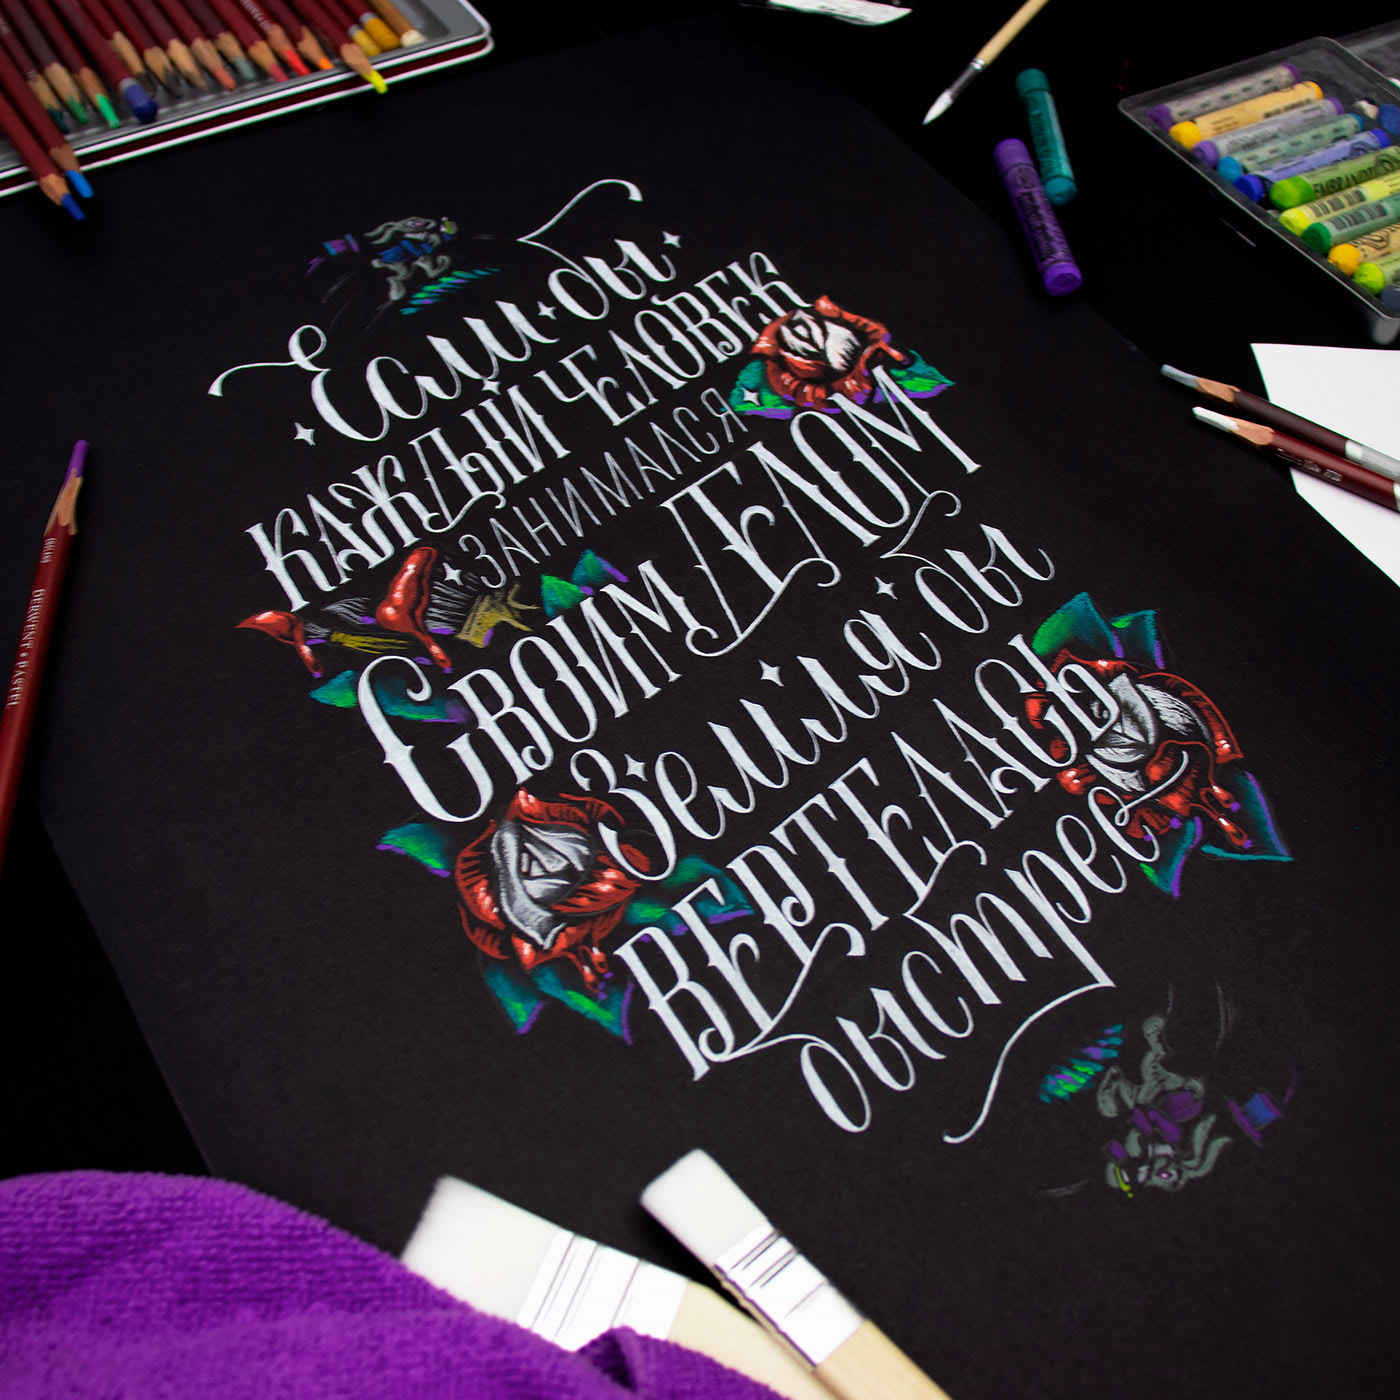 Если бы
КАЖДЫЙ ЧЕЛОВЕК
ЗАНИМАЛСЯ
СВОИМ ДЕЛОМ
Земля бы
ВЕРТЕЛАСЬ
быстрее
DERWENT PASTEL